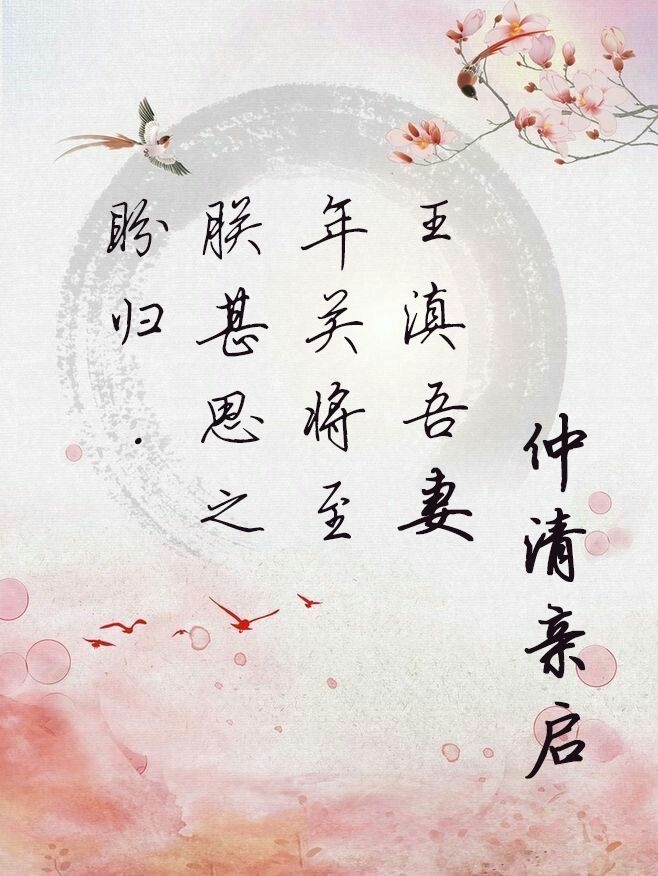 仲清亲启
王滇吾妻
年关将至
朕甚思之
盼归.